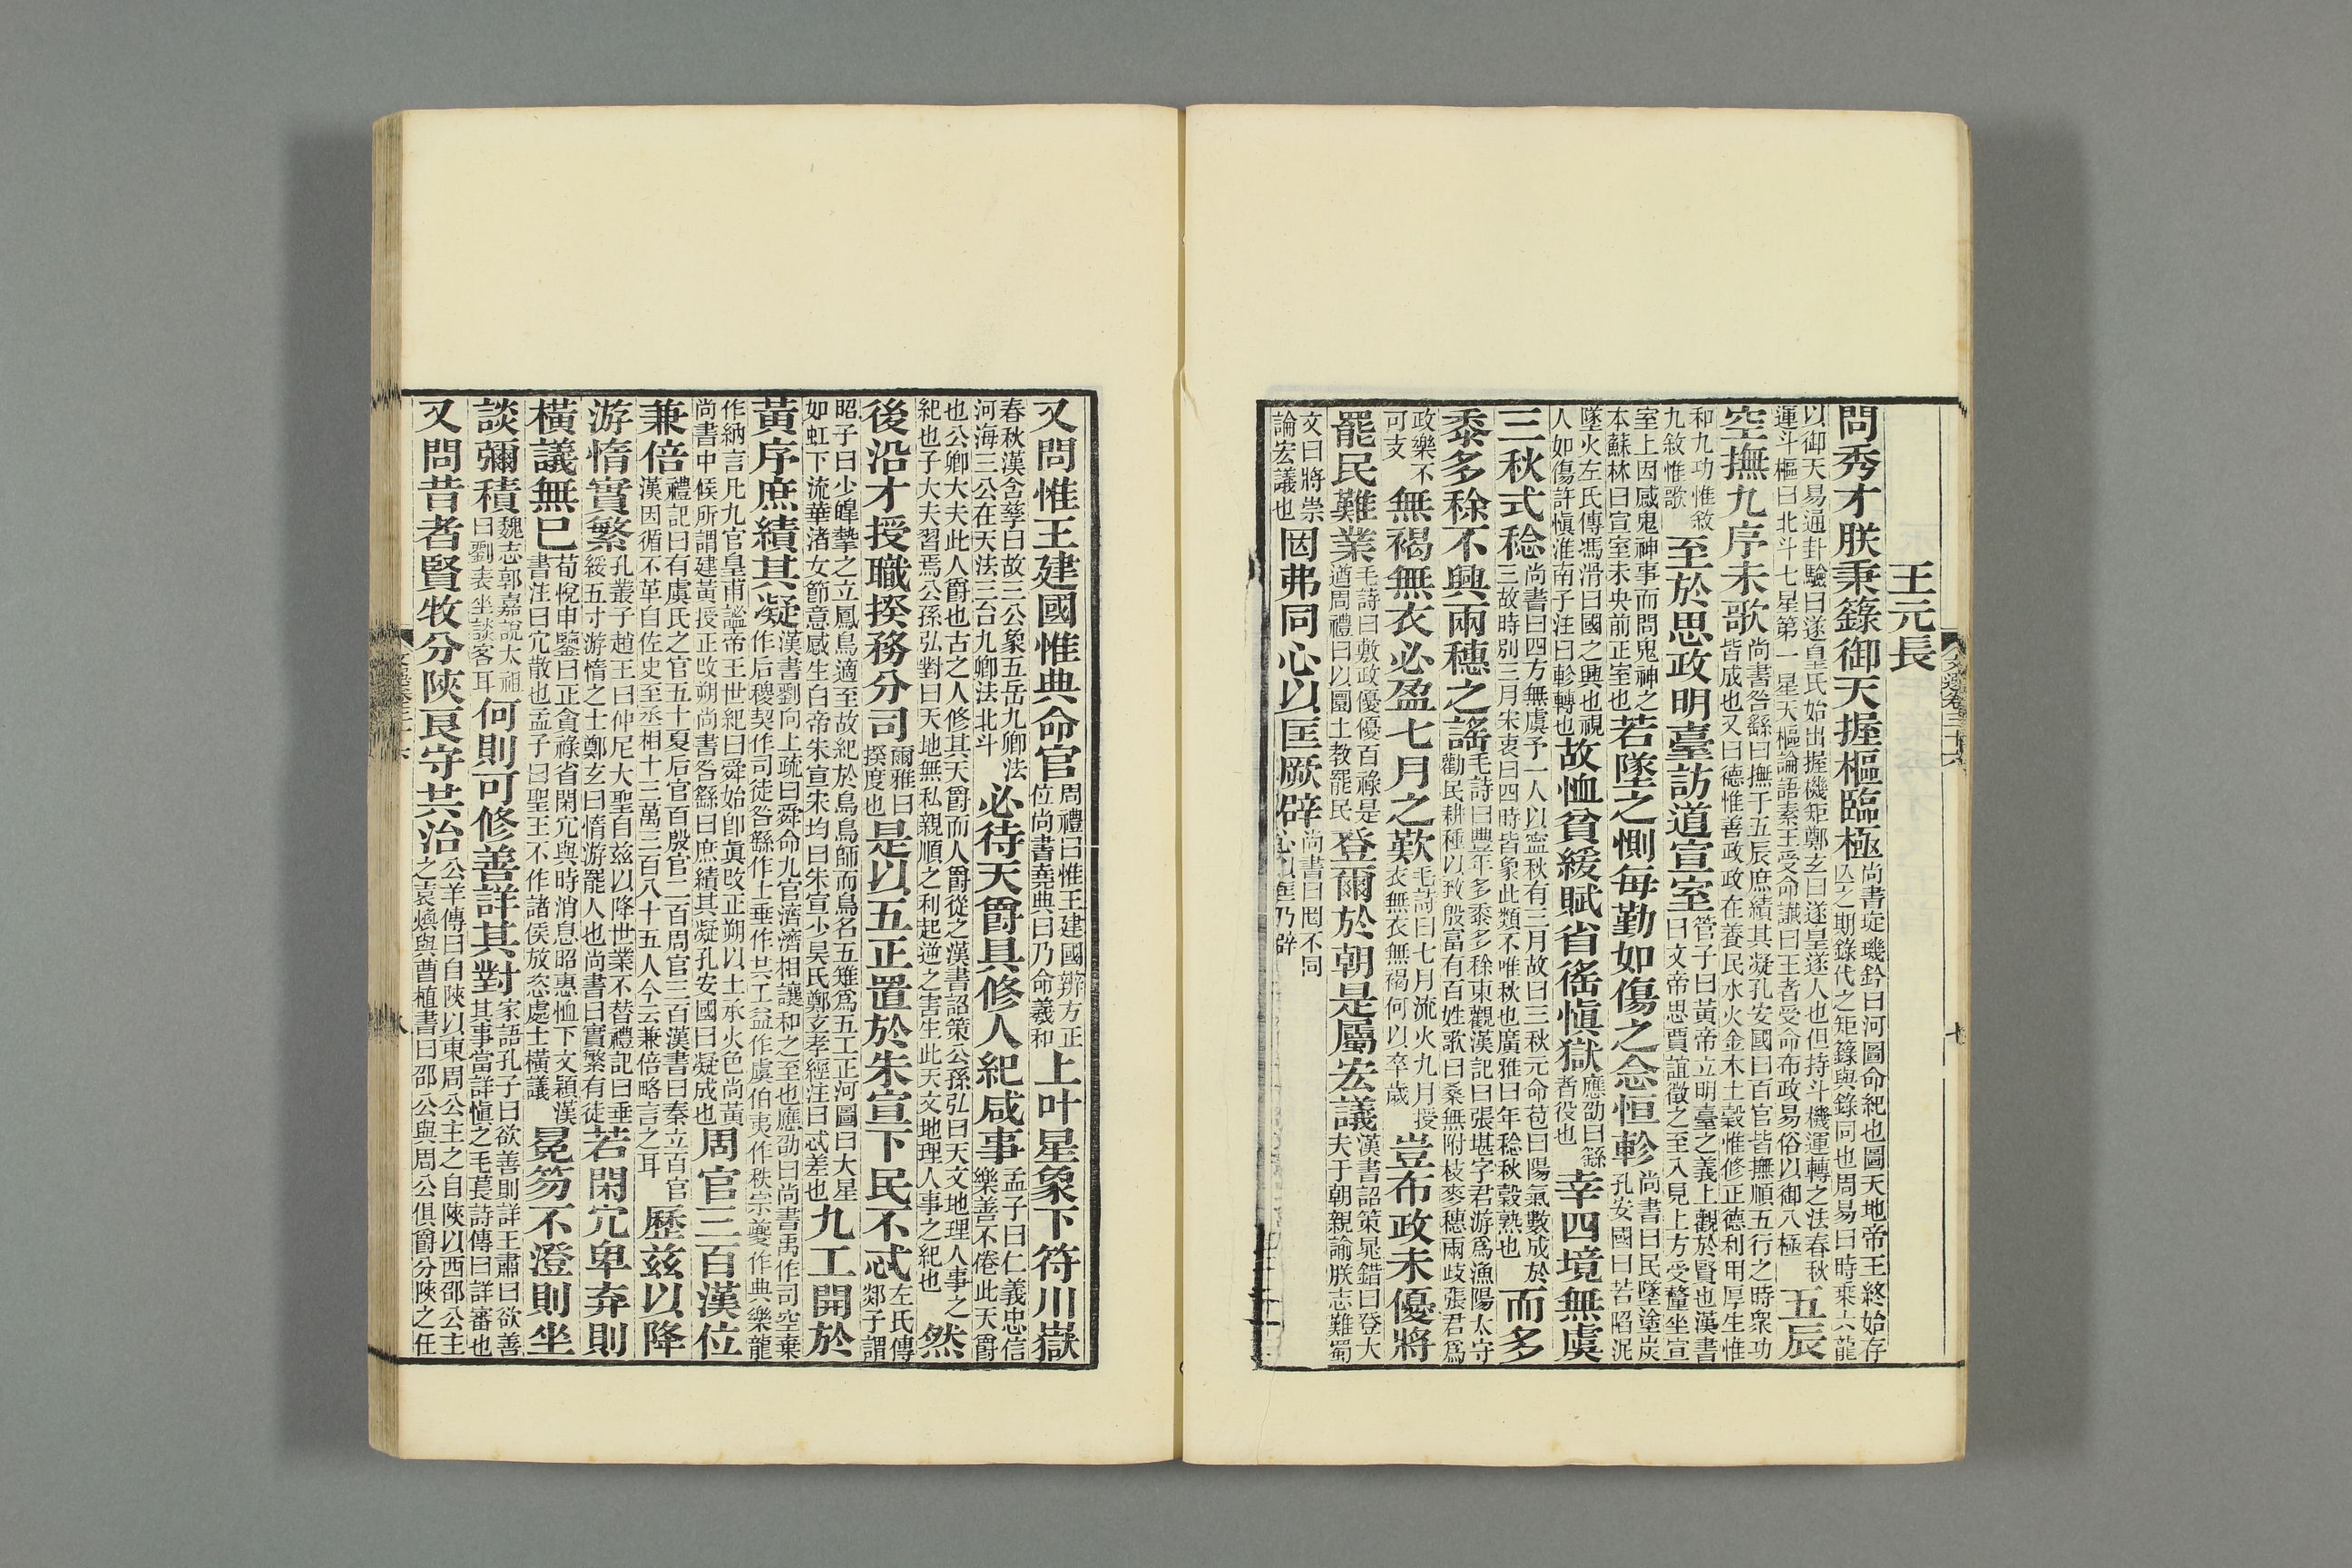 王元長
問秀才朕秉籙御天握樞臨極尚書琁璣鈐曰河圖命紀也圖天地帝王終始存亡之期籙代之矩籙與錄同也周易曰時乘六龍
以御天易通卦驗曰遂皇氏始出握機矩鄭玄曰遂皇遂人也但持斗機運轉之法春秋運斗樞曰北斗七星第一星天樞論語素王受命讖曰王者受命布政易俗以御八極五辰
空撫九序未歌尚書咎繇曰撫于五辰庶績其凝孔安國曰百官皆撫順五行之時衆功皆成也又曰德惟善政政在養民水火金木土穀惟修正德利用厚生惟
和九功惟敘九敘惟歌至於思政明臺訪道宣室管子曰黃帝立明臺之義上觀於賢也漢書曰文帝思賈誼徵之至入見上方受釐坐宣
室上因感鬼神事而問鬼神之本蘇林曰宣室未央前正室也若墜之惻每勤如傷之念恒軫尚書曰民墜塗炭孔安國曰若陷泥
墜火左氏傳馮滑曰國之興也視人如傷許愼淮南子注曰軫轉也故恤貧緩賦省徭愼獄應劭曰繇者役也幸四境無虞
三秋式稔尚書曰四方無虞予一人以寍秋有三月故曰三秋元命苞曰陽氣數成於三故時別三月宋衷曰四時皆象此類不唯秋也廣雅曰年稔秋穀熟也而多
黍多稌不興兩穗之謠毛詩曰豐年多黍多稌東觀漢記曰張堪字君游爲漁陽太守勸民耕種以致殷富有百姓歌曰桑無附枝麥穗兩歧張君爲
政樂不可支無褐無衣必盈七月之歎毛詩曰七月流火九月授衣無衣無褐何以卒歲豈布政未優將
罷民難業毛詩曰敷政優優百祿是遒周禮曰以圜土教罷民登爾於朝是屬宏議漢書詔策晁錯曰登大夫于朝親諭朕志難蜀
文曰將崇論宏議也因弗同心以匡厥辟尚書曰罔不同心以匡乃辟
又問惟王建國惟典命官周禮曰惟王建國辨方正位尚書堯典曰乃命羲和上叶星象下符川嶽
春秋漢含孳曰故三公象五岳九卿法河海三公在天法三台九卿法北斗必待天爵具修人紀咸事孟子曰仁義忠信樂善不倦此天爵
也公卿大夫此人爵也古之人修其天爵而人爵從之漢書詔策公孫弘曰天文地理人事之紀也子大夫習焉公孫弘對曰天地無私親順之利起逆之害生此天文地理人事之紀也然
後沿才授職揆務分司爾雅曰揆度也是以五正置於朱宣下民不忒左氏傳郯子謂
昭子曰少皥摯之立鳳鳥適至故紀於鳥鳥師而鳥名五雉爲五工正河圖曰大星如虹下流華渚女節意感生白帝朱宣宋均曰朱宣少昊氏鄭玄孝經注曰忒差也九工開於
黃序庶績其凝漢書劉向上疏曰舜命九官濟濟相讓和之至也應劭曰尚書禹作司空棄作后稷契作司徒咎繇作士垂作共工益作虞伯夷作秩宗夔作典樂龍
作納言凡九官皇甫謐帝王世紀曰舜始卽眞改正朔以土承火色尚黃尚書中候所謂建黃授正改朔尚書咎繇曰庶績其凝孔安國曰凝成也周官三百漢位
兼倍禮記曰有虞氏之官五十夏后官百殷官二百周官三百漢書曰秦立百官漢因循不革自佐史至丞相十三萬三百八十五人今云兼倍略言之耳歷茲以降
游惰實繁孔叢子趙王曰仲尼大聖自兹以降世業不替禮記曰垂緌五寸游惰之士鄭玄曰惰游罷人也尚書曰實繁有徒若閑冗卑弃則
橫議無已荀悅申鑒曰正貪祿省閑冗與時消息昭惠恤下文穎漢書注曰冗散也孟子曰聖王不作諸侯放恣處士橫議冕笏不澄則坐
談彌積魏志郭嘉說太祖曰劉表坐談客耳何則可修善詳其對家語孔子曰欲善則詳王肅曰欲善其事當詳愼之毛萇詩傳曰詳審也
又問昔者賢牧分陝良守共治公羊傳曰自陝以東周公主之自陝以西邵公主之袁煥與曹植書曰邵公與周公俱爵分陝之任